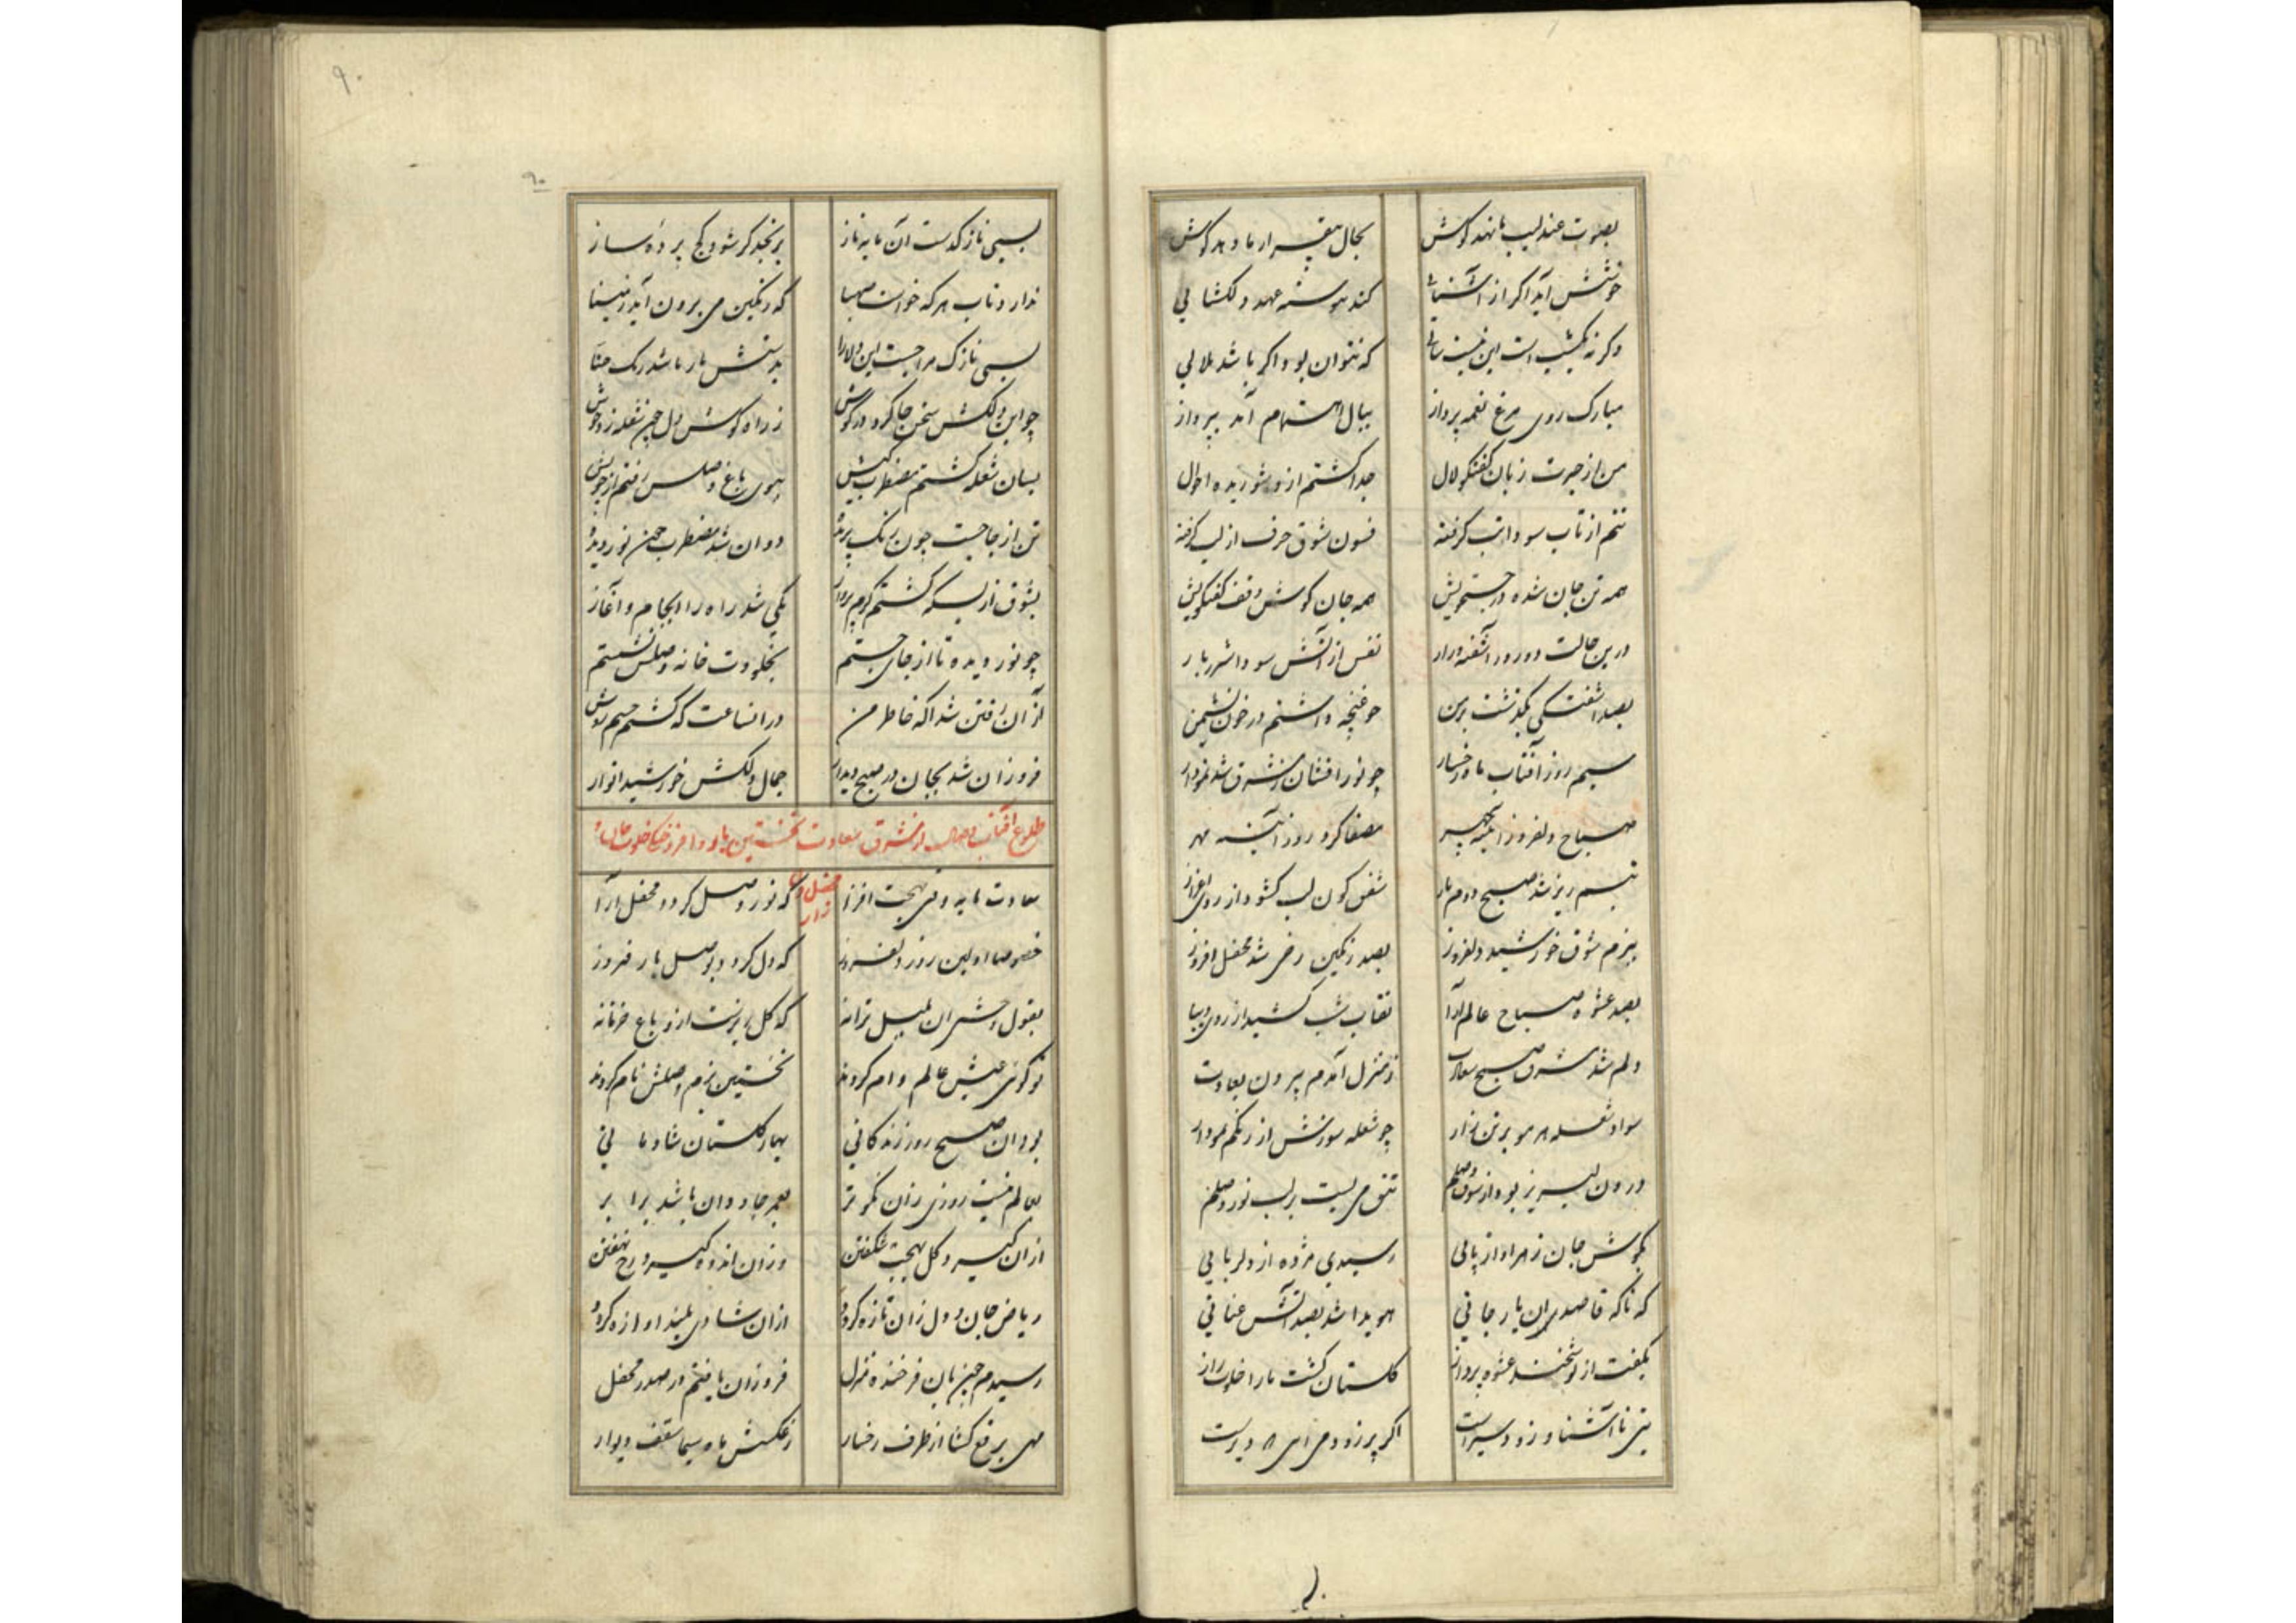 بصوت عندلیب ما نهد کوش بحال بیقرار ما دهد کوش
خوشش آید اکر از آشنایی کند پیوسته عهد دلکشایی
وکرنه یکشب است این نیست سالی که نتوان بود اکر باشد ملالی
مبارک روی مرغ نغمه پرداز ببال اهتمام آمد بپرواز
من از حیرت زبان کفتکو لال جدا کشتم ازو شوریده احوال
تنم از تاب سودا تب کرفته فسون شوق حرف از لب کرفته
همه تن جان شده در جستجویش همه جان کوش وقف کفتکویش
درین حالت دو روز آشفته وار نفس از آتش سودا شرربار
بصد آشفتکی بکذشت بر من چو غنچه داشتم در خون نشیمن
سیم روز آفتاب ماه رخسار چو نور افشان ز مشرق شد نمودار
صباح دلفروز آینه چهر مصفا کرد روز آینه مهر
تبسم ریز شد صبح دوم بار شفق کون لب کشود از روی
ببزم شوق خورشید دلفروز بصد رنکین رخی شد محفل افروز
بصد عشوه صباح عالم آرا نقاب شب کشید از روی دیبا
دلم شد مشرق صبح سعادت ز منزل آمدم بیرون بعادت
سواد شعله هر مو بر تن زار چو شعله سوزش از رنکم نمودار
درون لبریز بود از شوق وصلم تتق می بست بر لب نور وصلم
بکوش جان ز هر آواز پائی رسیدی مژده از دلربایی
که ناکه قاصدی زان یار جانی هویدا شد بصد آتش عنانی
بکفت از نوشخند عشوه پرداز کلستان کشت ما را خلوت راز
بتی ناآشنا و زود سیرست اکر پر زود می آیی دیرست
۹۰
۹۰
بسی نازکدست آن مایه ناز برنجد کر شود کج پرده ساز
ندارد تاب هر که خواست صهبا که رنکین می برون آید ز مینا
بسی نازک مزاجست این دلارا بدستش بار باشد رنک حنا
چو این دلکش سخن جا کرد در کوش ز راه کوش دل چون شعله زد جوش
بسان شعله کشتم مضطرب کیش بسوی باغ وصلش رفتم از خویش
تن از جا جست چون رنک پریده دوان شد مضطرب چون نور دیده
بشوق از بسکه کشتم کرم پرواز یکی شد راه را انجام و آغاز
چو نور دیده تا از جای جستم بخلوت خانه وصلش نشستم
از آن رفتن شد آکه خاطر من در آنساعت که کشتم
فروزان شد بجان در صبح دیدار جمال دلکش خورشید انوار
طلوع آفتاب وصال از مشرق سعادت نخستین بار و افروختن خلوت
محفل
راز
سعادت مایه وقتی بهجت افزا که نور وصل کردد محفل آرا
خصوصا اولین روز دلفروز که دل کردد بوصل یار فیروز
بقول دلبران بلبل ترانه که کل ریزست ازو باغ فسانه
تو کوئی عیش عالم وام کردند نخستین بزم وصلش نام کردند
بود آن صبح روز زندکانی بهار کلستان شادمانی
بعالم نیست روزی زان نکوتر بعمر جاودان باشد برابر
از آن کیرد کل بهجت شکفتن وزان اندوه کیرد رخ نهفتن
ریاض جان و دل زان تازه کردد از آن شادی بلند آوازه کردد
رسیدم چون بآن فرخنده منزل فروزان یافتم در صدر محفل
مهی برقع کشا از طرف رخسار ز عکسش ماه سیما سقف و دیوار